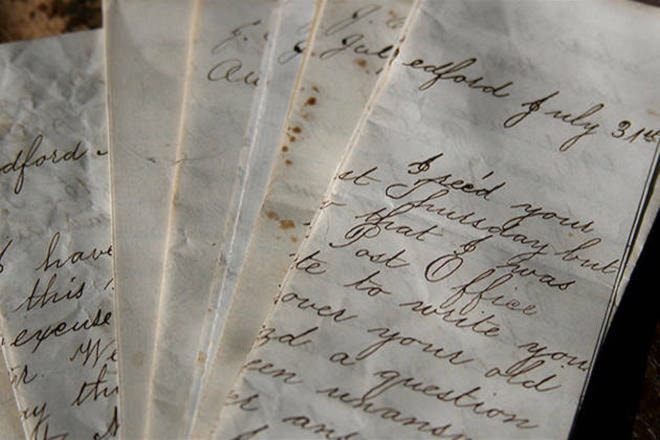 dford
I have
this
excuse
We
Au
Jul
edford July 31st
I rec'd your
st Thursday but
that I was
Post Office
te to write you
over your old
d a question
een unans
er an